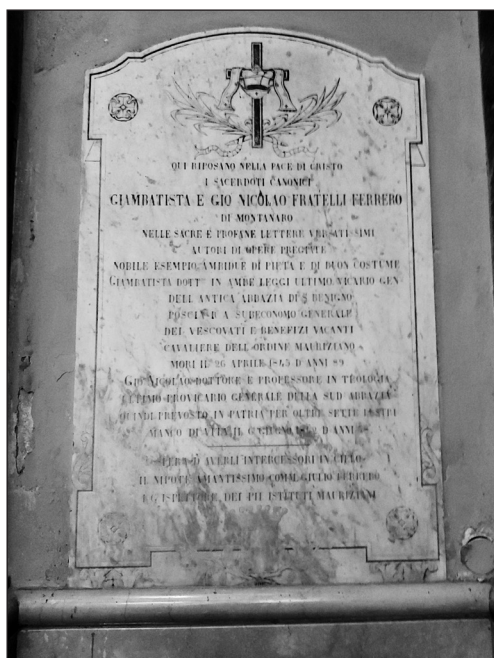 QUI RIPOSANO NELLA PACE DI CRISTO
I SACERDOTI CANONICI
GIAMBATISTA E GIO NICOLAO FRATELLI FERRERO
DI MONTANARO
NELLE SACRE E PROFANE LETTERE VERSATISSIMI
AUTORI DI OPERE PREGIATE
NOBILE ESEMPIO AMBIDUE DI PIETA E DI BUON COSTUME
GIAMBATISTA DOTT IN AMBE LEGGI ULTIMO VICARIO GEN
DELL ANTICA ABBAZIA DI S BENIGNO
POSCIA R A SUBECONOMO GENERALE
DEI VESCOVATI E BENEFIZI VACANTI
CAVALIERE DELL ORDINE MAURIZIANO
MORI IL 26 APRILE D ANNI 89
GIO NICOLAO DOTTORE E PROFESSORE IN TEOLOGIA
ULTIMO PROVICARIO GENERALE DELLA SUD ABBAZIA
QUINDI PREVOSTO IN PATRIA PER OLTRE SETTE LUSTRI
MANCO DI VITA IL GIUGNO D ANNI
SPERA D AVERLI INTERCESSORI IN CIELO
IL NIPOTE AMANTISSIMO COMM GIULIO FERRERO
ISPETTORE DEI PII ISTITUTI MAURIZIANI